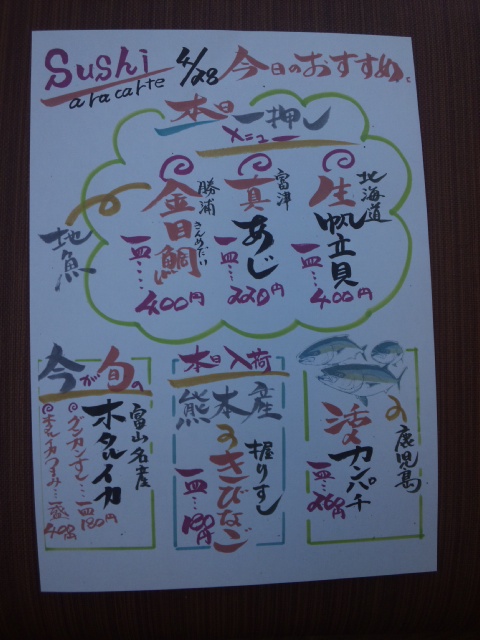 Sushi
a ra carte
4/28 今日のおすすめ。
本日一押し
メニュー
北海道
生帆立貝
一皿…400円
富津
真あじ
一皿…220円
勝浦
きんめだい
金目鯛
一皿…400円
地魚
今が旬の
富山名産
ホタルイカ
グンカンずし…一皿180円
ホタルイカつまみ…一盛400円
本日入荷
熊本産
のきびなご
握りずし
一皿…180円
の鹿児島
活〆カンパチ
一皿…260円